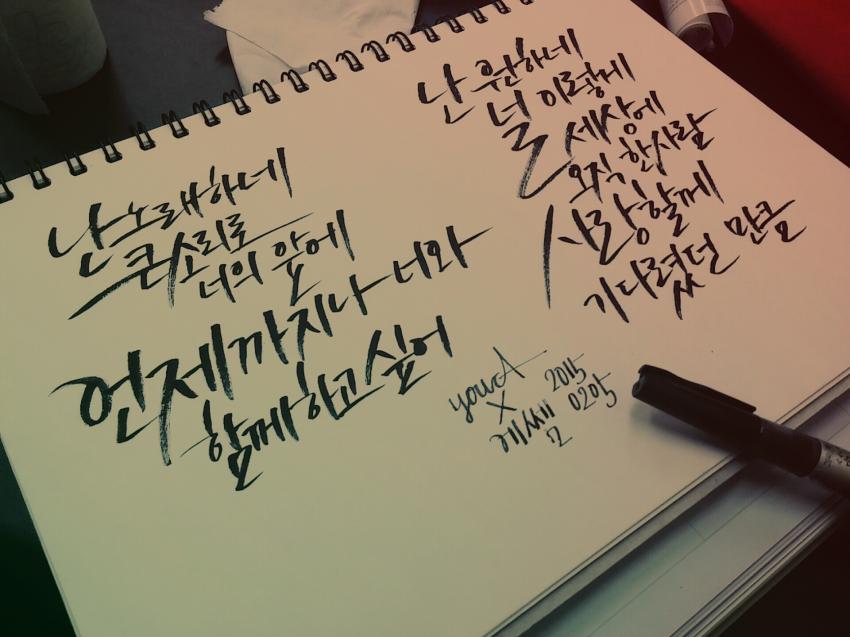 난 노래하네
큰 소리로
너의 앞에
언제까지나 너와
함께하고싶어
난 원하네
널 이렇게
세상에
오직 한사람
사랑할께
기다렸던 만큼
your A
X
에쎌
2015
0205